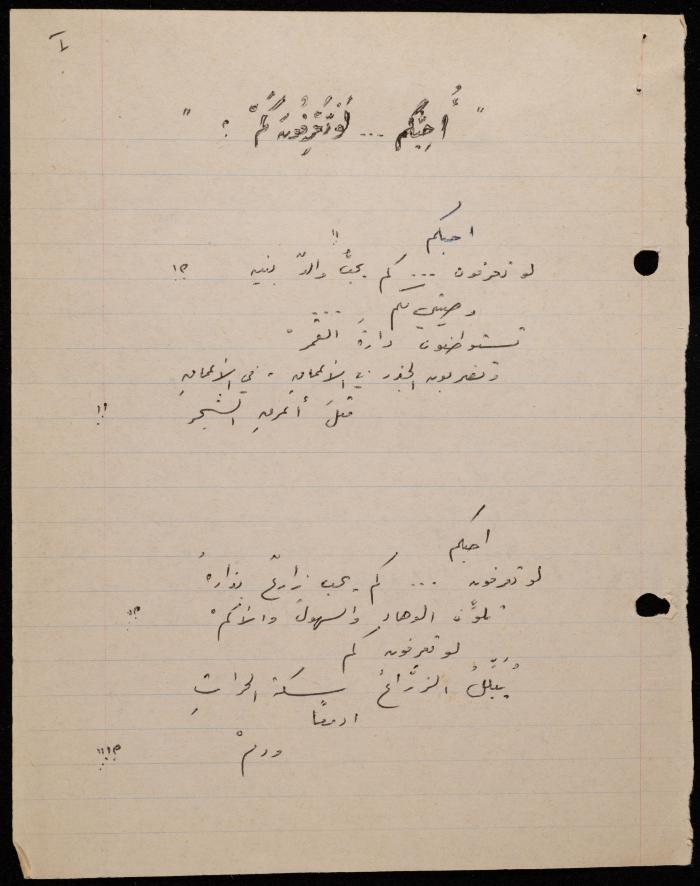 " أُحِبُّكُم ... لَوْ تَعْرِفُونَ كَمْ ؟ "
احبكم !!
لو تعرفون ... كم يحبُّ والدٌ بنيه ؟!
وصيتي لكم ...
تستوطنون دارةَ القمرْ
وتضربون الجذور في الأعماقِ ، في الأعماقِ
مثلَ أعرقِ الشجر !!
احبكم
لو تعرفون ... كم يحب زارعٌ بذارهُ
تلوِّن الوهاد والسهولَ والأكمْ ؟!
لو تعرفون كم
يُبَلِّلُ الزرَّاعُ سكة الحراثِ
ادمعًا
ودمْ ؟!!!